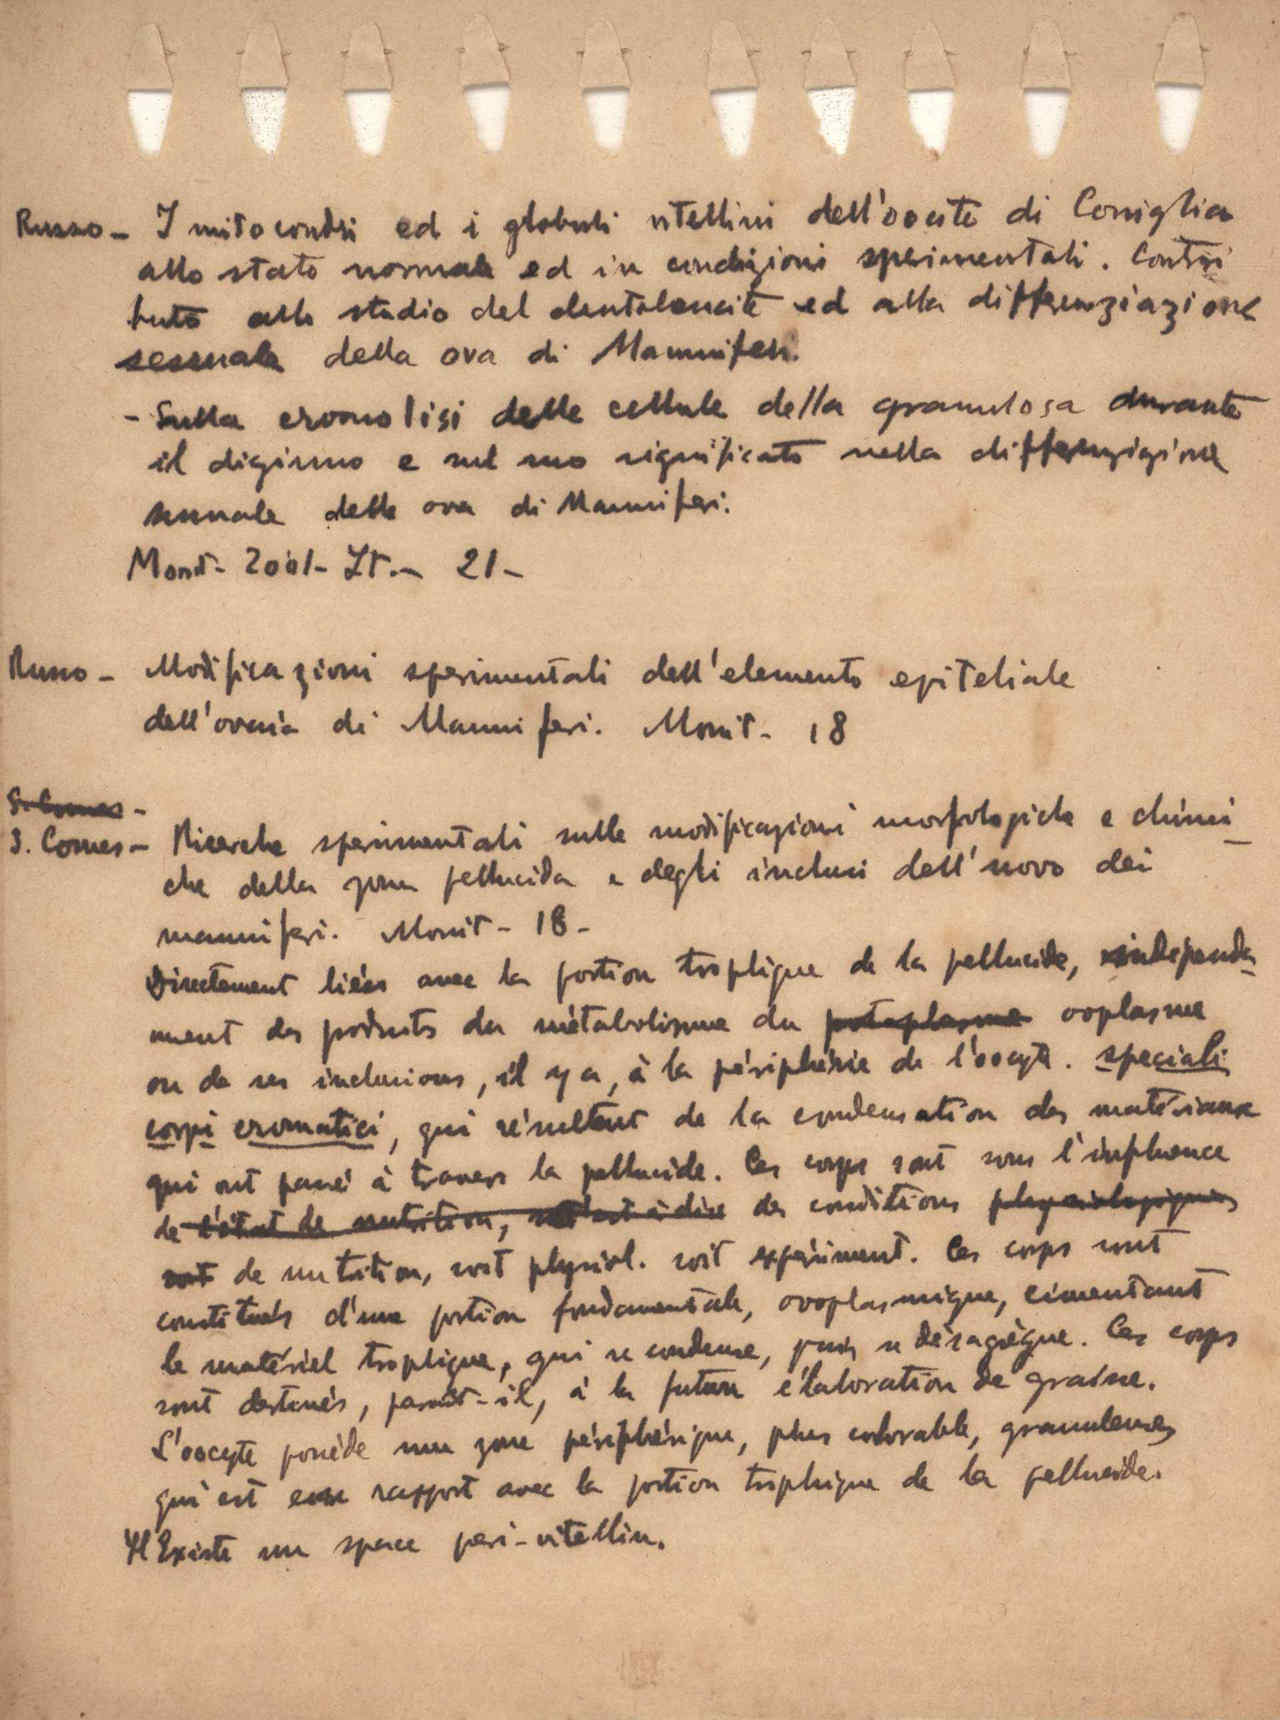 Russo - I mitocondri ed i globuli vitellini dell'oocite di Coniglia
allo stato normale ed in condizioni sperimentali. Contri
buto allo studio del ed alla differenziazione
sessuale della ova di Mammiferi.
- Sulla cromolisi delle cellule della granulosa durante
il digiuno e sul suo significato nella differenziazione
sessuale delle ova di Mammiferi.
Monit- Zool- It.- 21-
Russo - Modificazioni sperimentali dell'elemento epiteliale
dell'ovaia di Mammiferi. Monit- 18
S. Comes -
S. Comes - Ricerche sperimentali sulle modificazioni morfologiche e chimi
che della zona pellucida e degli inclusi dell'uovo dei
mammiferi. Monit - 18 -
Directement liées avec la portion trophique de la pellucide, independa
ment des produits du métabolisme du protoplasme ooplasme
ou de ses inclusions, il y a, à la périphérie de l'oocyte. speciali
corpi cromatici, qui résultent de la condensation des matériaux
qui ont passé à travers la pellucide. Ces corps sont sous l'influence
de l'état de nutrition, c'est à dire des conditions physiologiques
soit de nutrition, soit physiol. soit expériment. Ces corps sont
constitués d'une portion fondamentale, ovoplasmique, cimentant
le matériel trophique, qui se condense, puis se désagrègue. Ces corps
sont destinés, paraît-il, à la future élaboration de graisse.
L'oocyte possède une zone périphérique, plus colorable, granuleuse,
qui est en rapport avec la portion trophique de la pellucide.
Il Existe un space peri-vitellin.